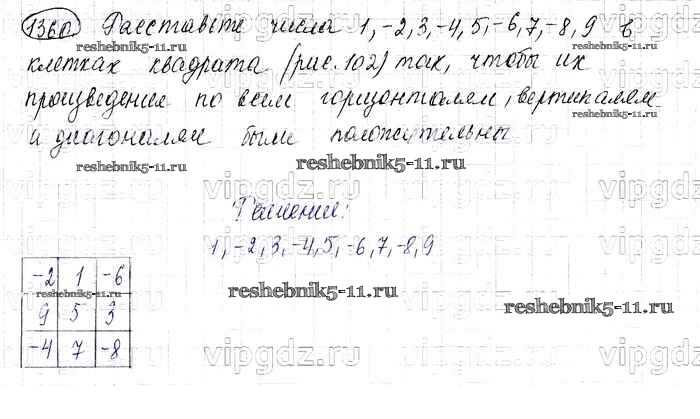 1360. Расставьте числа 1, -2, 3, -4, 5, -6, 7, -8, 9 в
клетках квадрата (рис. 102) так, чтобы их
произведение по всем горизонталям, вертикалям
и диагоналям были положительны
Решение:
1, -2, 3, -4, 5, -6, 7, -8, 9
-2 1 -6
9 5 3
-4 7 -8
reshebnik5-11.ru
reshebnik5-11.ru
reshebnik5-11.ru
reshebnik5-11.ru
reshebnik5-11.ru
reshebnik5-11.ru
reshebnik5-11.ru
vipgdz.ru
vipgdz.ru
vipgdz.ru
vipgdz.ru
vipgdz.ru
vipgdz.ru
vipgdz.ru
vipgdz.ru